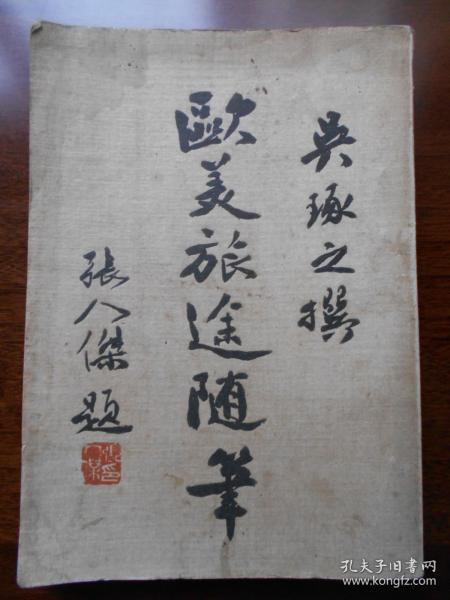 吳琢之撰
歐美旅途随筆
張人傑題
孔夫子旧书网
www.kongfz.com